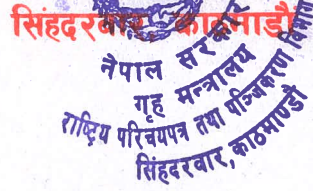 सिंहदरवार, काठमाडौं
नेपाल सरकार
गृह मन्त्रालय
राष्ट्रिय परिचयपत्र तथा पञ्जिकरण विभाग
सिंहदरवार, काठमाण्डौ